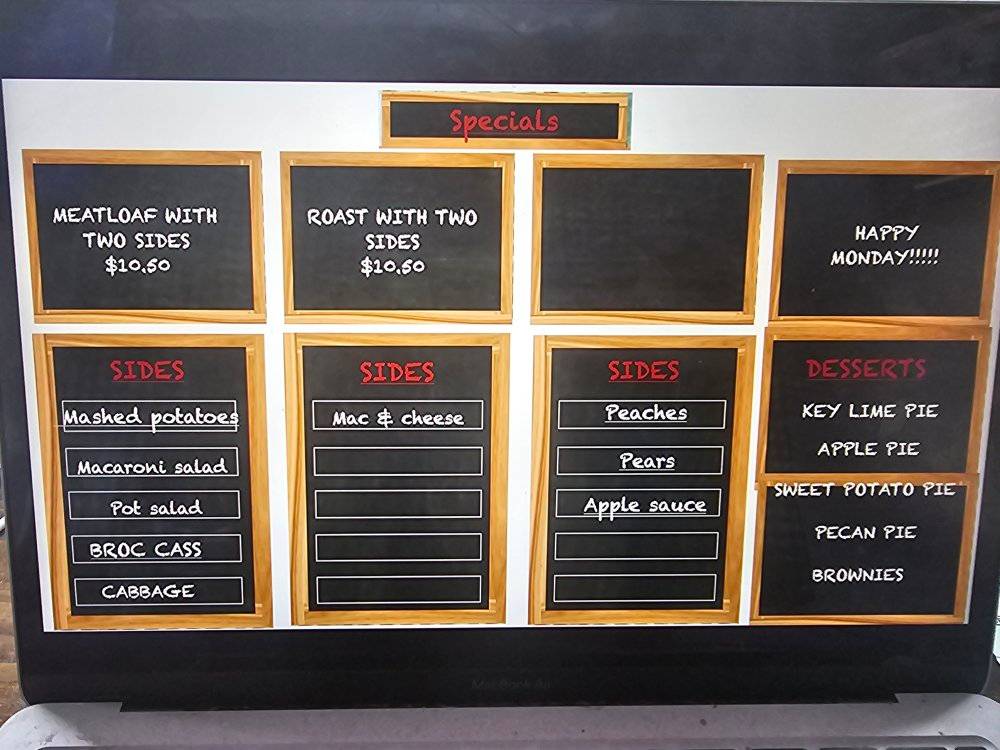 Specials
MEATLOAF WITH
TWO SIDES
$10.50
ROAST WITH TWO
SIDES
$10.50
HAPPY
MONDAY!!!!!
SIDES
Mashed potatoes
Macaroni salad
Pot salad
BROC CASS
CABBAGE
SIDES
Mac & cheese
SIDES
Peaches
Pears
Apple sauce
DESSERTS
KEY LIME PIE
APPLE PIE
SWEET POTATO PIE
PECAN PIE
BROWNIES
MacBook Air